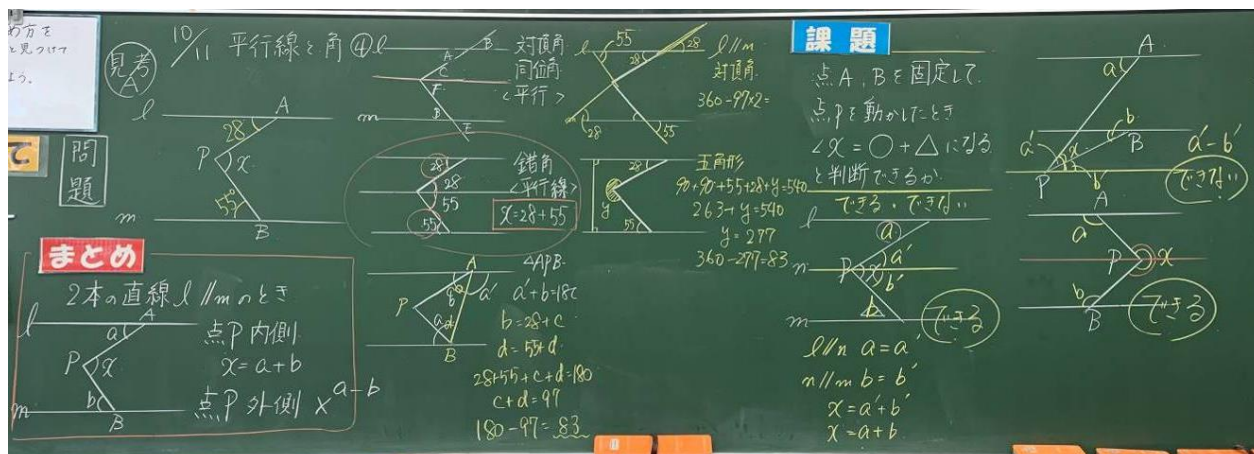 め方を
と見つけて
よう。
て
見考
A
10/11 平行線と角④
問題
l
A
28
P
x
55°
m
B
まとめ
2本の直線l//mのとき
l
A
a
P
x
b
m
B
点P 内側
x=a+b
点P 外側 x a-b
l
B
A
C
F
m
D
E
対頂角
同位角
<平行>
28
28
55
55
錯角
<平行線>
x=28+55
A
P
a'
B
△APB
b=28+c
d=55+d
28+55+c+d=180
c+d=97
180-97=83
l
55
28
28
m
28
55
l//m
対頂角
360-97×2=
28
y
55
五角形
90+90+55+28+y=540
263+y=540
y=277
360-277=83
課題
点A,Bを固定して
点Pを動かしたとき
∠x=○+△になる
と判断できるか
できる・できない
l
a
n
P
x
a'
b'
m
b
できる
l//n a=a'
n//m b=b'
x=a'+b'
x=a+b
A
a
b
B
a'
x
P
b'
a'-b'
できない
A
a
P
x
b
B
できる